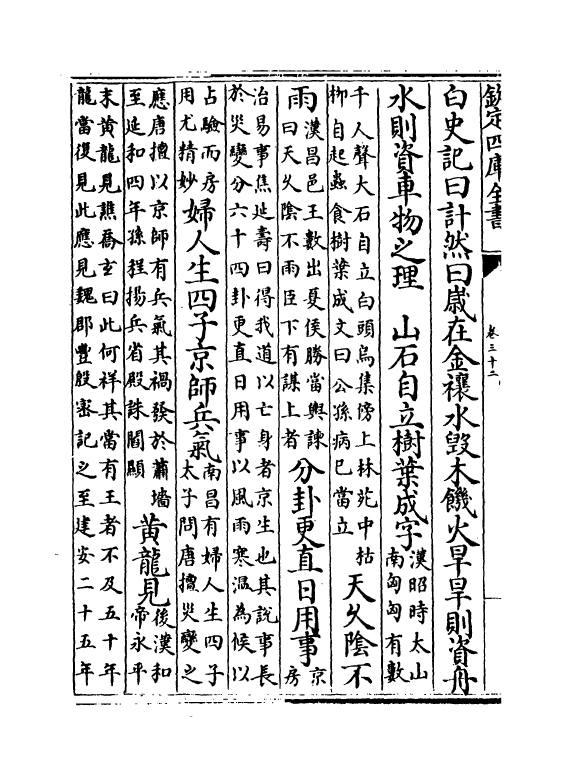 欽定四庫全書 卷三十二
白史記曰計然曰嵗在金禳水毁木饑火旱旱則資舟
水則資車物之理 山石自立樹葉成字
漢昭時太山
南匈匈有數
千人聲大石自立白頭烏集傍上林苑中枯
栁自起蟲食樹葉成文曰公孫病已當立
天久陰不
雨
漢昌邑王數出夏侯勝當輿諫
曰天久陰不雨臣下有謀上者
分卦更直日用事
京
房
治易事焦延壽曰得我道以亡身者京生也其說事長
於災變分六十四卦更直日用事以風雨寒温為候以
占驗而房
用尤精妙
婦人生四子京師兵氣
南昌有婦人生四子
太子問唐檀災變之
應唐檀以京師有兵氣其禍發於蕭墻
至延和四年孫程揚兵省殿誅閻顯
黄龍見
後漢和
帝永平
末黄龍見譙喬玄曰此何祥其當有王者不及五十年
龍當復見此應見魏郡豐殷宻記之至建安二十五年